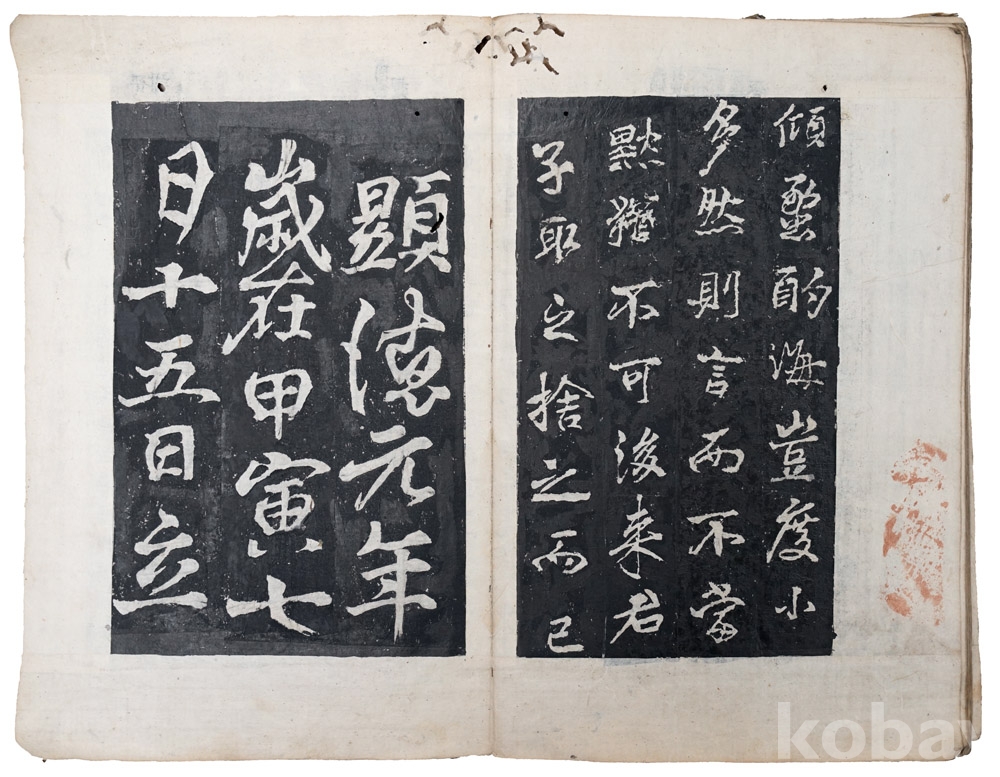 傾蠡酌海豈度小
多然則言而不當
默猶不可後来君
子取之捨之而已
顯德元年
歲在甲寅七
月十五日立
kobay